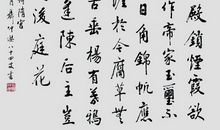 殿鎖煙霞欲
作帝家玉璽不
日角錦帆應
涯於今腐草
古垂楊有暮鴉
逢陳后主豈
後庭花
隋宮
八十四叟書